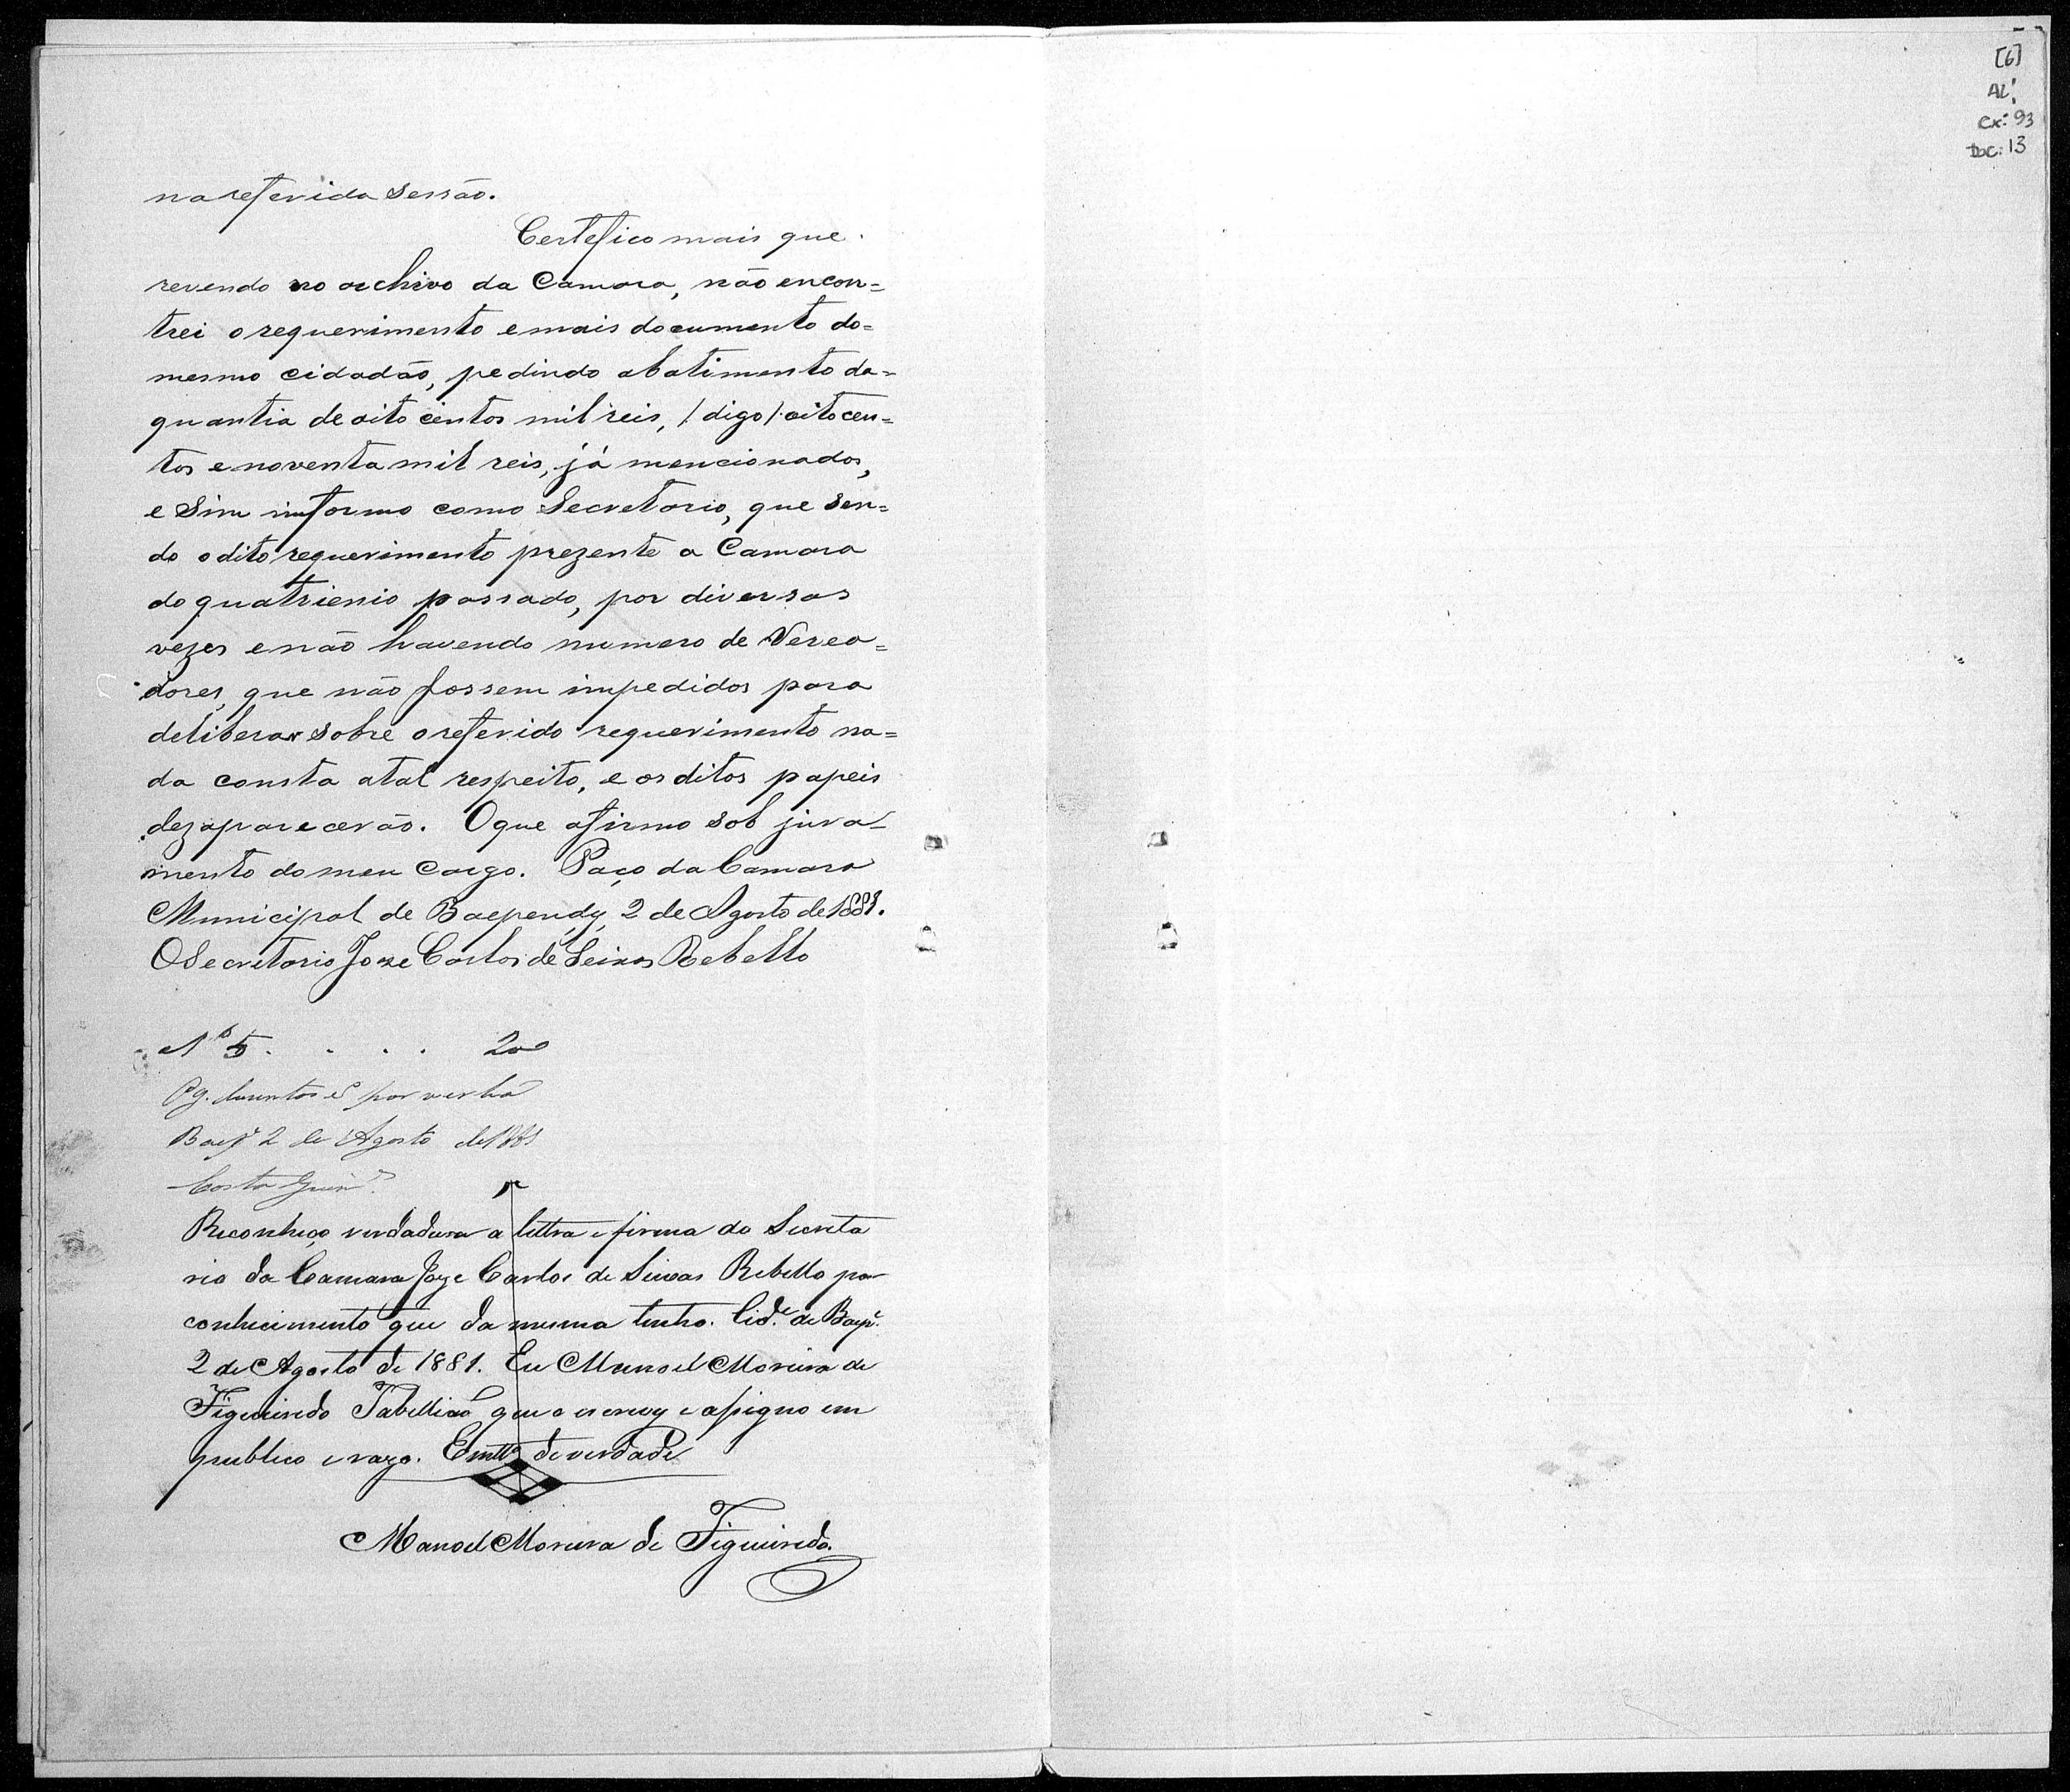 na referida sessão.
Certefico mais que
revendo no archivo da Camara, não encon=
trei o requerimento e mais documento do=
mesmo cidadão, pedindo abatimento da=
quantia de oito centos mil reis, /digo/ oito cen=
tos e noventa mil reis, já mencionados,
e Sim imformo como Secretario, que sen=
do o dito requerimento prezente a Camara
do quatrienio passado, por diversas
vezes e não havendo numero de Verea=
dores, que não fossem impedidos para
deliberar sobre o referido requerimento na=
da consta a tal respeito, e os ditos papeis
dezaparecerão. O que afirmo sob jura-
mento do meu Cargo. Paço da Camara
Municipal de Baependy, 2 de Agosto de 1881.
O Secretario Joze Carlos de Seixas Rebello
Nº 5 . . . . 200
Pg. duzentos rs por verba
Baepᵉ 2 de Agosto de 1881
Costa
Reconheço verdadeira a lettra e firma do Secreta
rio da Camara Joze Carlos de Seixas Rebello por
conhecimento que da mesma tenho. Cidᵉ de Baepᵉ
2 de Agosto de 1881. Eu Manoel Moreira de
Figueiredo Tabellião que o escrevy e assigno em
publico e razo. Em ttº de verdade
Manoel Moreira de Figueiredo.
[6]
AL!
Cx: 93
Doc: 13